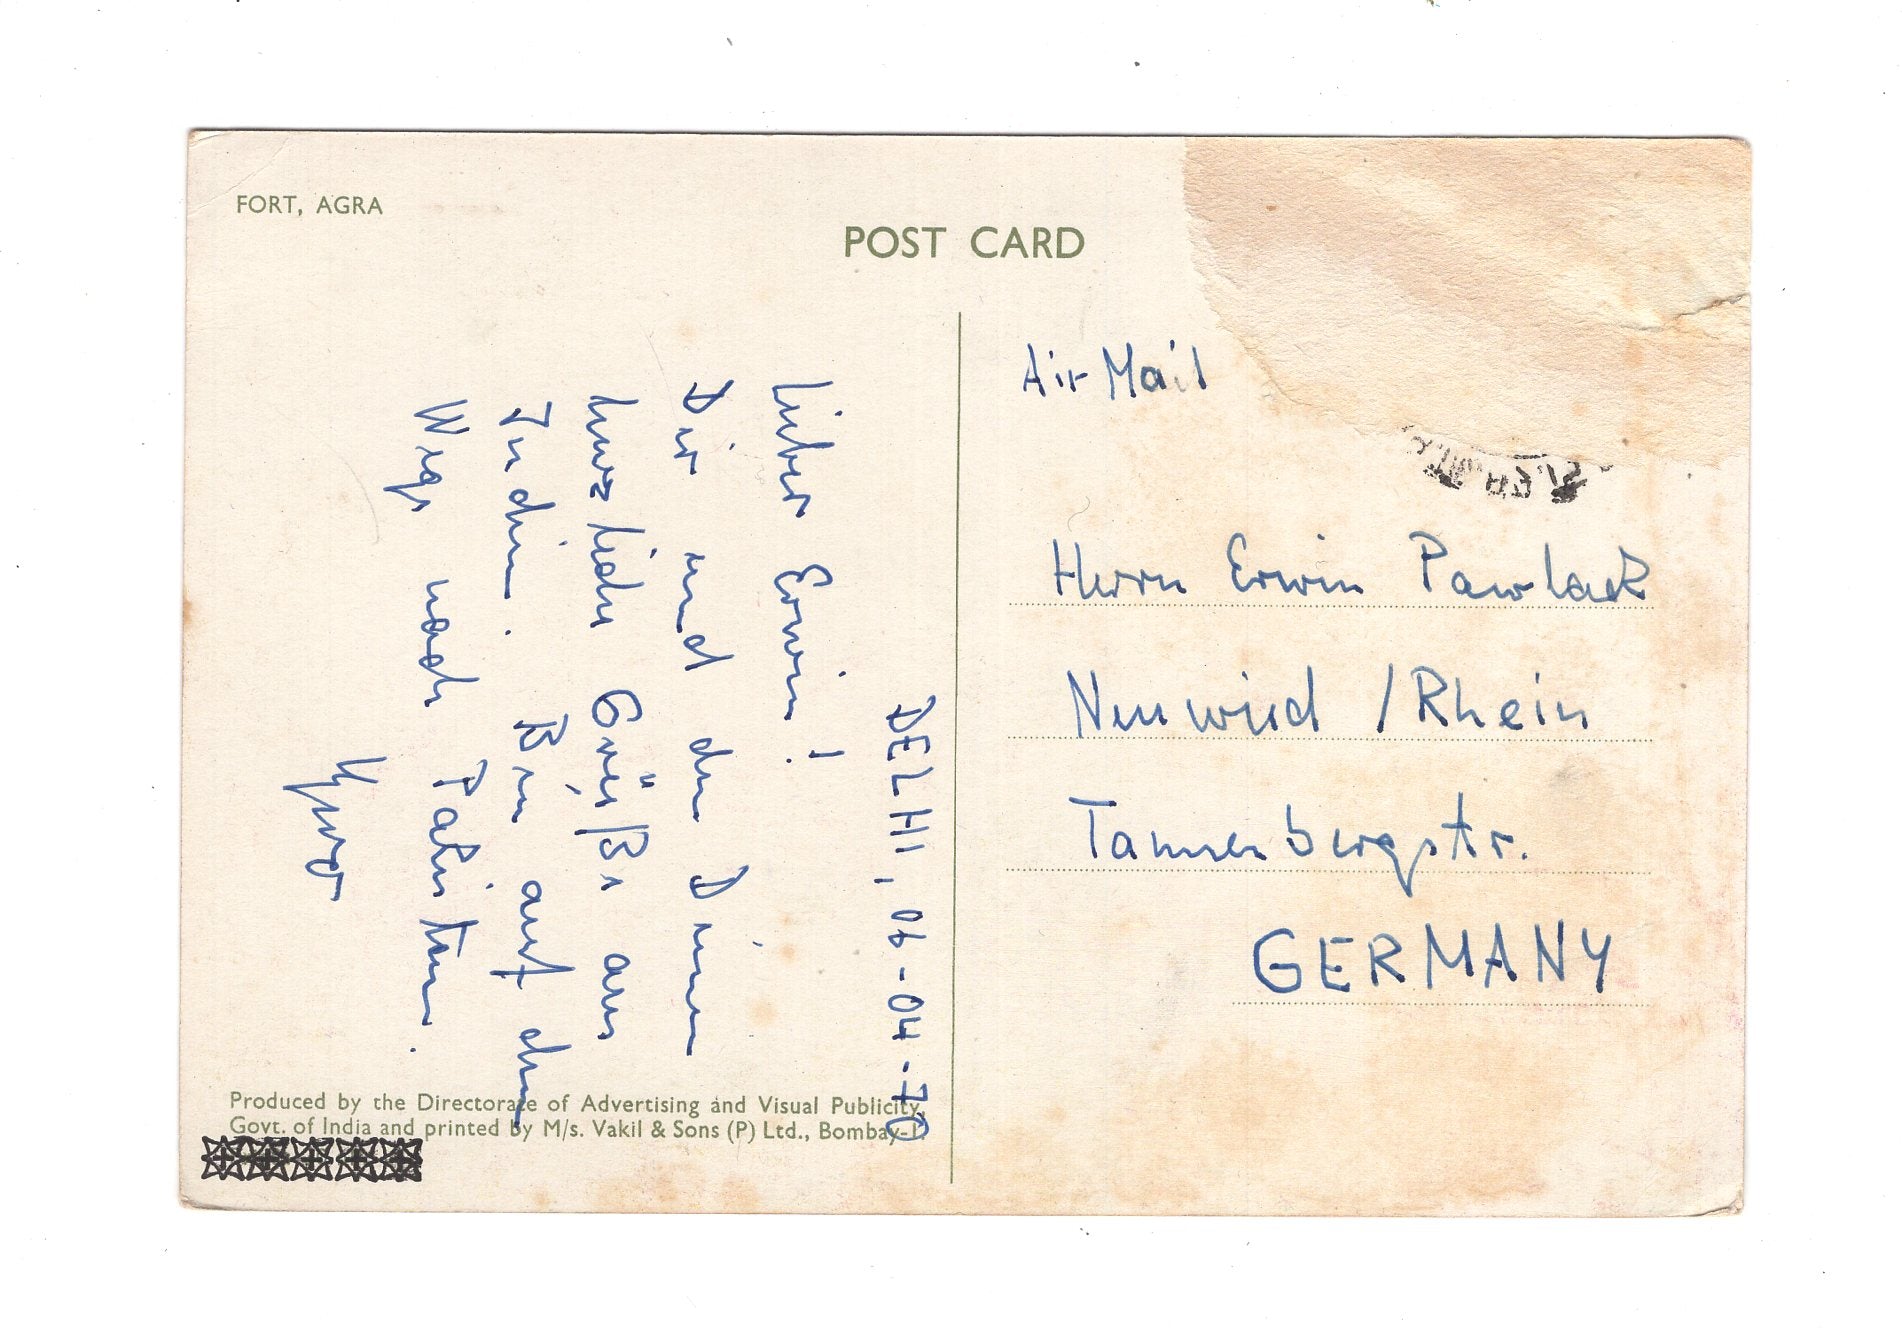 FORT, AGRA
POST CARD
DELHI, 06-04-70
Lieber Erwin!
Dir und den Deinen
herzliche Grüße aus
Indien. Bin auf dem
Wege nach Pakistan.
Air Mail
Herrn Erwin Pawlack
Neuwied / Rhein
Tannenbergstr.
GERMANY
Produced by the Directorate of Advertising and Visual Publicity,
Govt. of India and printed by M/s. Vakil & Sons (P) Ltd., Bombay-1.